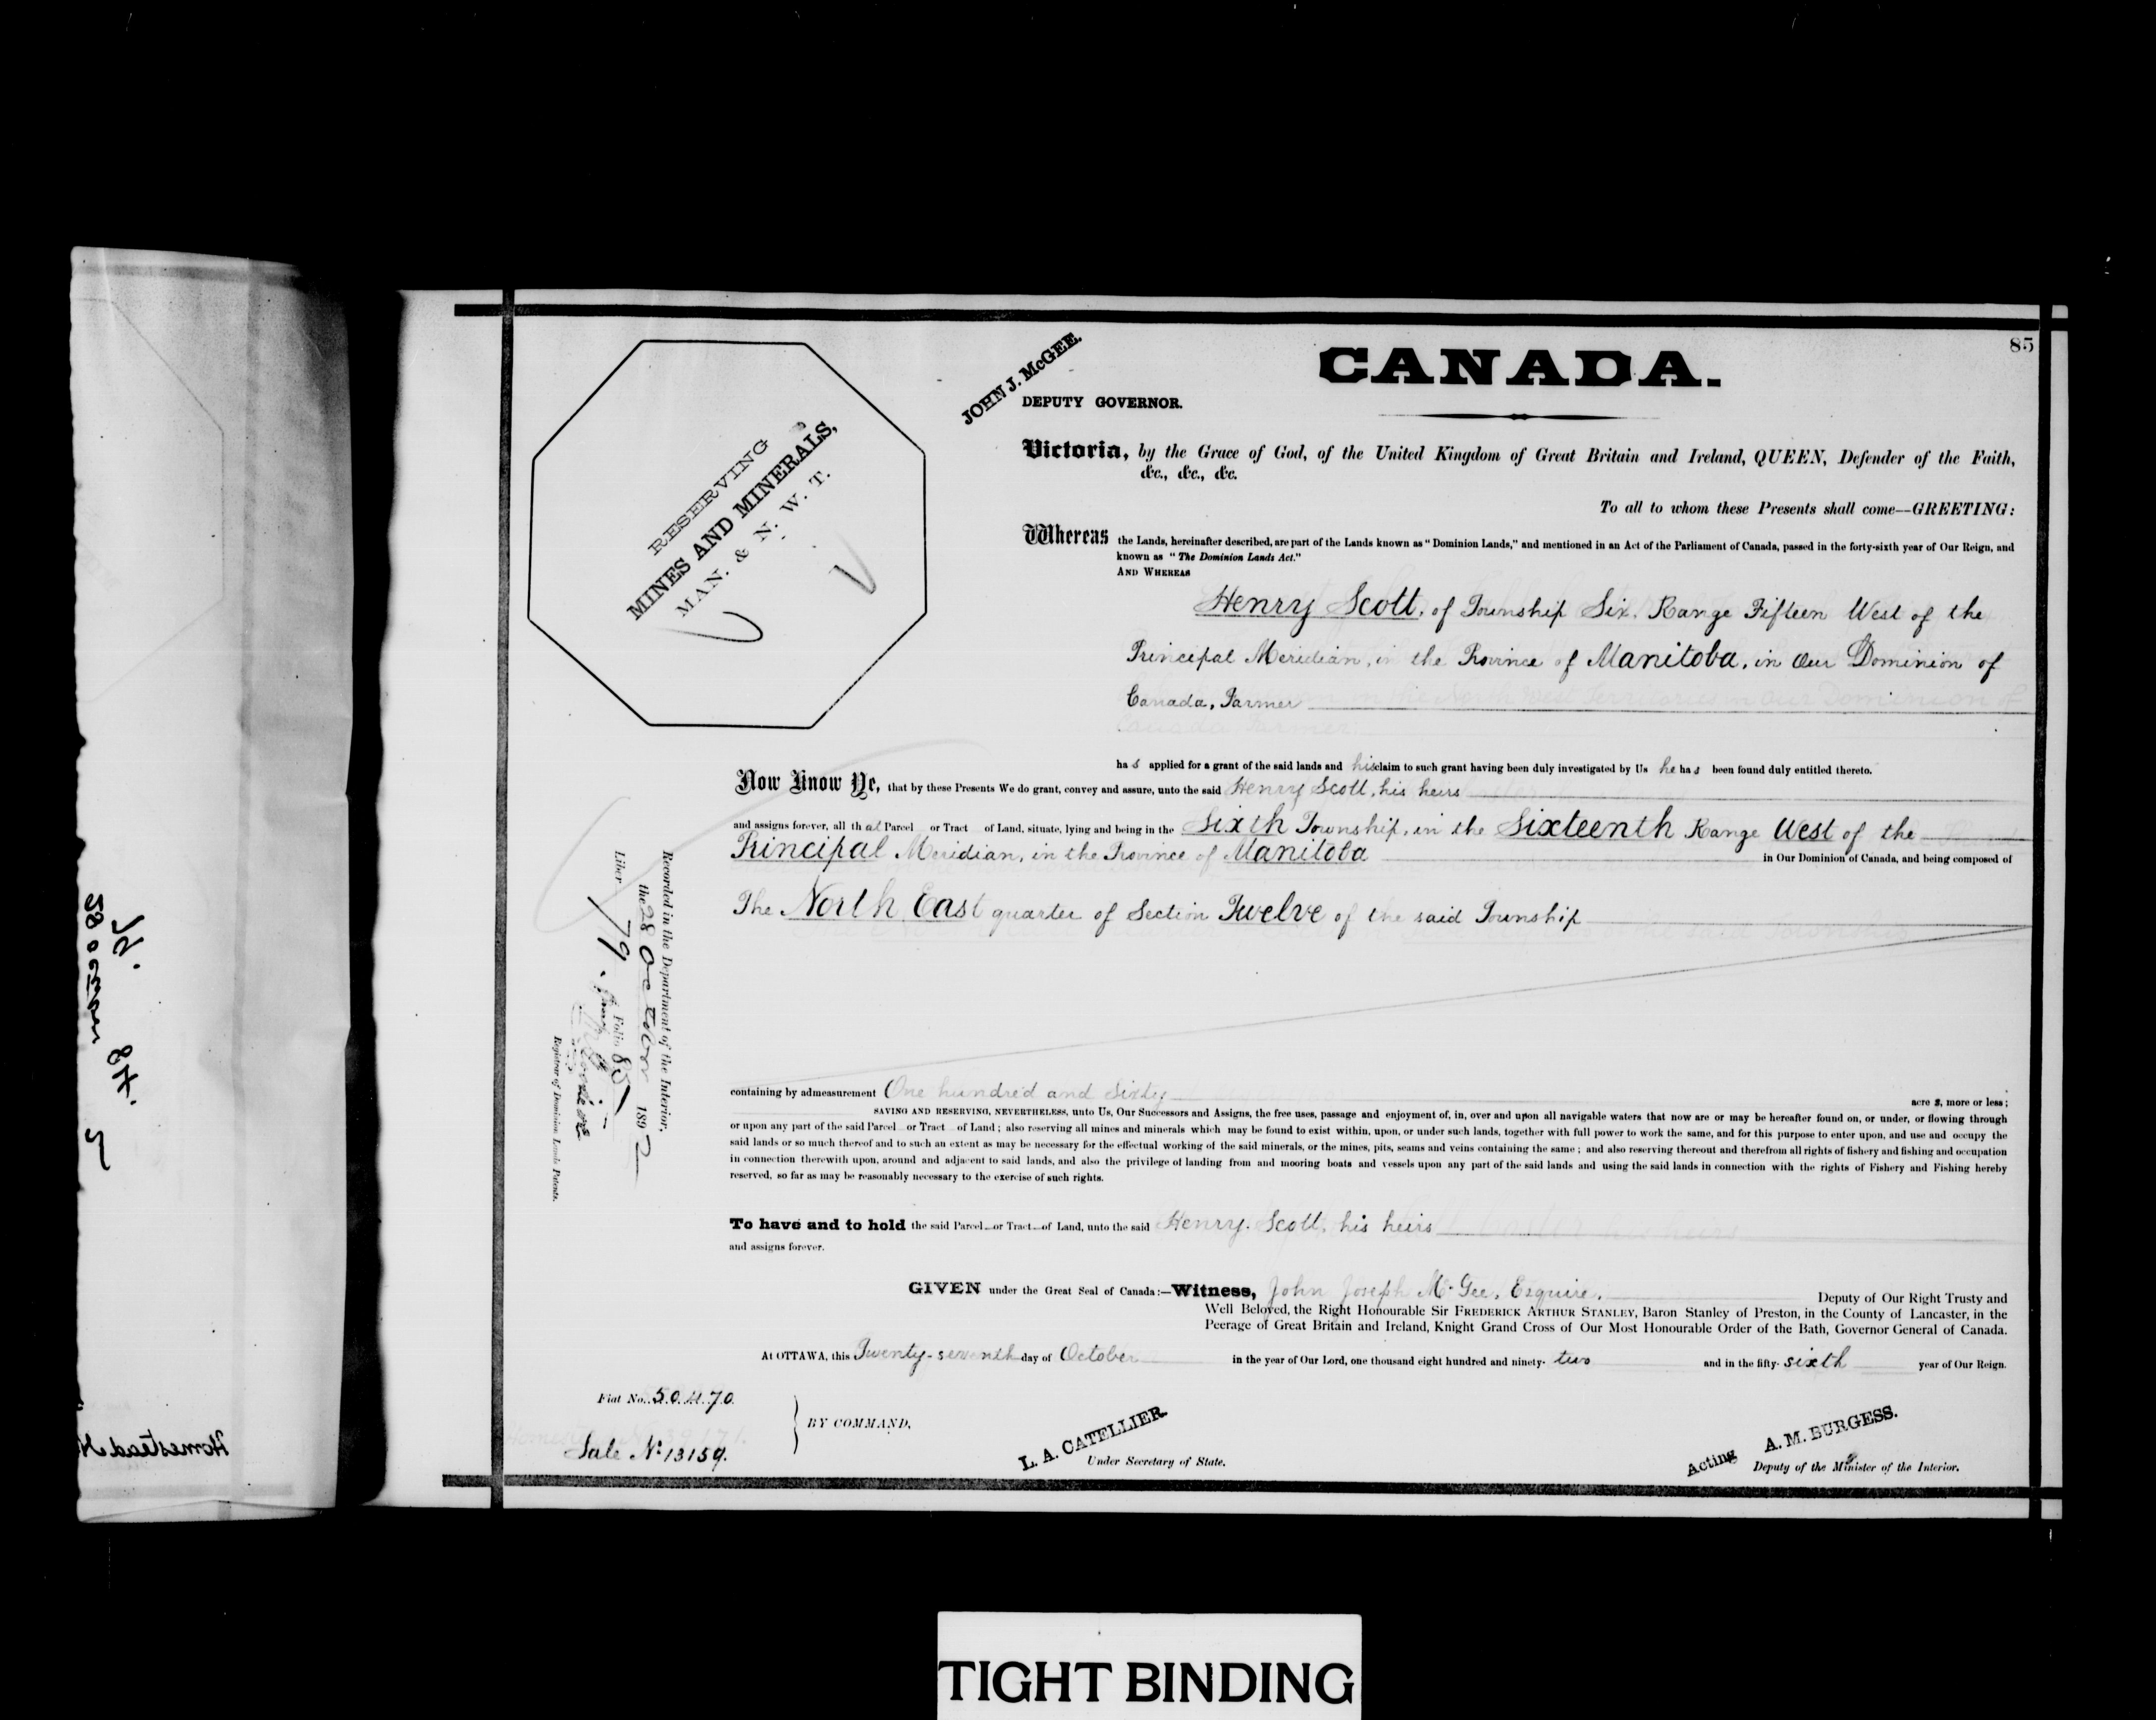 85
CANADA.
JOHN J. McGEE.
DEPUTY GOVERNOR.
RESERVING
MINES AND MINERALS,
MAN. & N. W. T.
Victoria, by the Grace of God, of the United Kingdom of Great Britain and Ireland, QUEEN, Defender of the Faith,
&c., &c., &c.
To all to whom these Presents shall come—GREETING:
Whereas the Lands, hereinafter described, are part of the Lands known as "Dominion Lands," and mentioned in an Act of the Parliament of Canada, passed in the forty-sixth year of Our Reign, and
known as "The Dominion Lands Act."
AND WHEREAS
Henry Scott, of Township Six, Range Fifteen West of the
Principal Meridian, in the Province of Manitoba, in Our Dominion of
Canada, Farmer
has applied for a grant of the said lands and his claim to such grant having been duly investigated by Us he has been found duly entitled thereto.
Now Know Ye, that by these Presents We do grant, convey and assure, unto the said Henry Scott, his heirs
and assigns forever, all that Parcel or Tract of Land, situate, lying and being in the Sixth Township, in the Sixteenth Range West of the
Principal Meridian, in the Province of Manitoba in Our Dominion of Canada, and being composed of
The North East quarter of Section Twelve of the said Township
Recorded in the Department of the Interior,
the 28 October 1892
Liber 79. Folio 85
Registrar of Dominion Lands Patents.
containing by admeasurement One hundred and Sixty acres, more or less;
SAVING AND RESERVING, NEVERTHELESS, unto Us, Our Successors and Assigns, the free uses, passage and enjoyment of, in, over and upon all navigable waters that now are or may be hereafter found on, or under, or flowing through
or upon any part of the said Parcel or Tract of Land; also reserving all mines and minerals which may be found to exist within, upon, or under such lands, together with full power to work the same, and for this purpose to enter upon, and use and occupy the
said lands or so much thereof and to such an extent as may be necessary for the effectual working of the said minerals, or the mines, pits, seams and veins containing the same; and also reserving thereout and therefrom all rights of fishery and fishing and occupation
in connection therewith upon, around and adjacent to said lands, and also the privilege of landing from and mooring boats and vessels upon any part of the said lands and using the said lands in connection with the rights of Fishery and Fishing hereby
reserved, so far as may be reasonably necessary to the exercise of such rights.
To have and to hold the said Parcel or Tract of Land, unto the said Henry Scott, his heirs
and assigns forever.
GIVEN under the Great Seal of Canada:—Witness, John Joseph McGee, Esquire, Deputy of Our Right Trusty and
Well Beloved, the Right Honourable Sir FREDERICK ARTHUR STANLEY, Baron Stanley of Preston, in the County of Lancaster, in the
Peerage of Great Britain and Ireland, Knight Grand Cross of Our Most Honourable Order of the Bath, Governor General of Canada.
At OTTAWA, this Twenty-seventh day of October in the year of Our Lord, one thousand eight hundred and ninety-two and in the fifty-sixth year of Our Reign.
Fiat No. 50470.
Sale No 13159.
BY COMMAND,
L. A. CATELLIER.
Under Secretary of State.
A. M. BURGESS.
Acting
Deputy of the Minister of the Interior.
Homestead
TIGHT BINDING